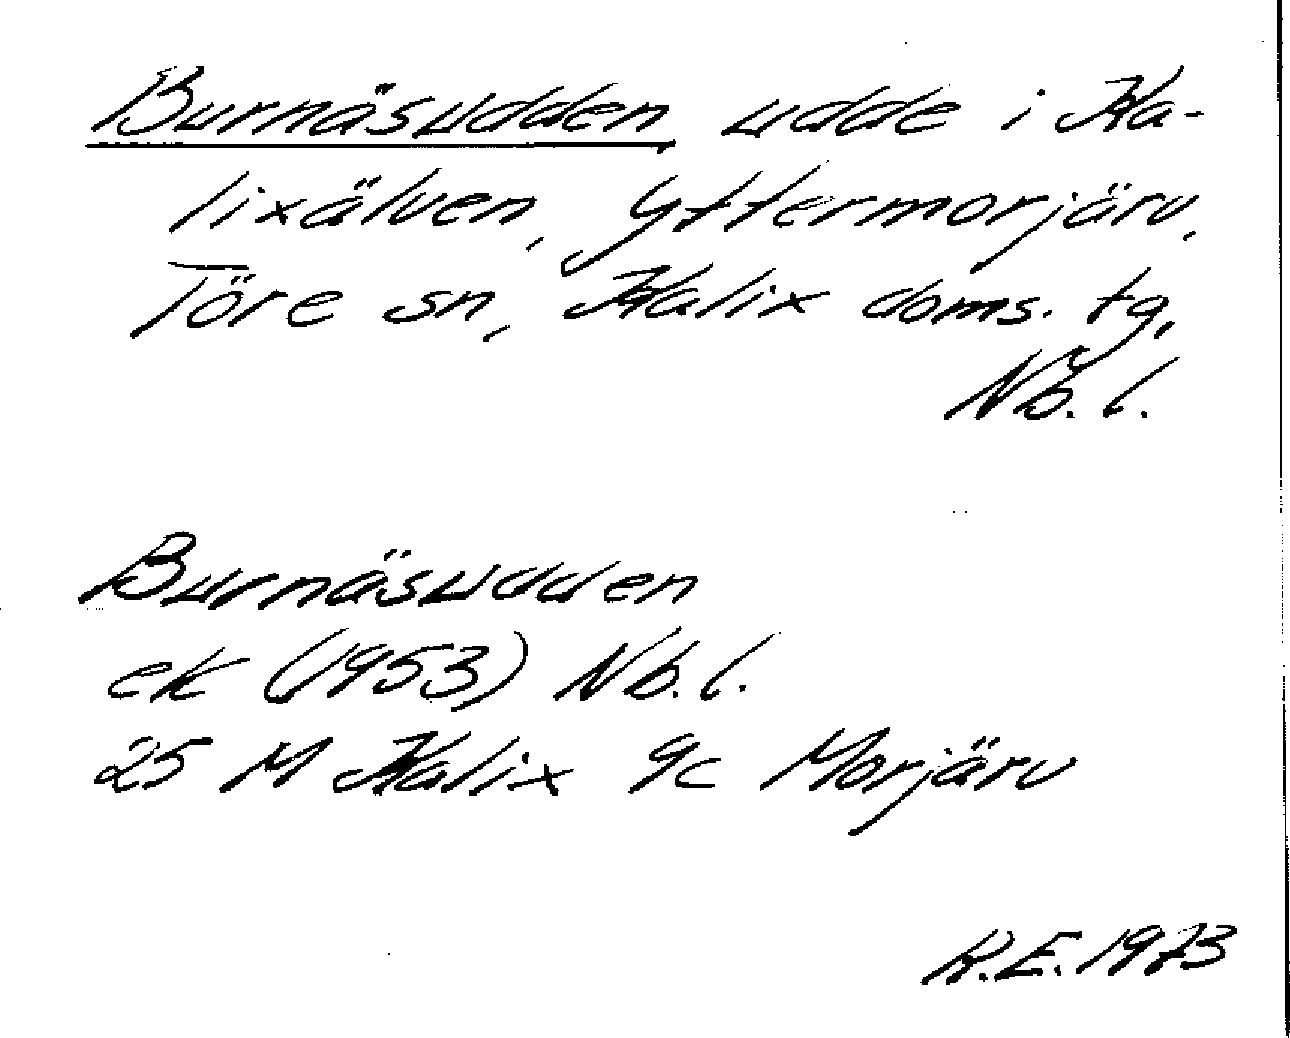 Burnäsudden, udde i Ka-
lixälven, Yttermorjärv,
Töre sn, Kalix doms. tg,
Nb. l.
Burnäsudden
ek (1953) Nb. l.
25 M Kalix 9c Morjärv
K.E. 1973